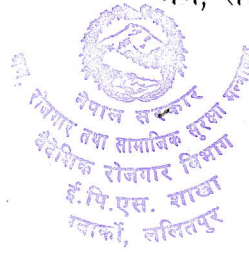 नेपाल सरकार
रोजगार तथा सामाजिक सुरक्षा
वैदेशिक रोजगार विभाग
ई.पि.एस. शाखा
ललितपुर